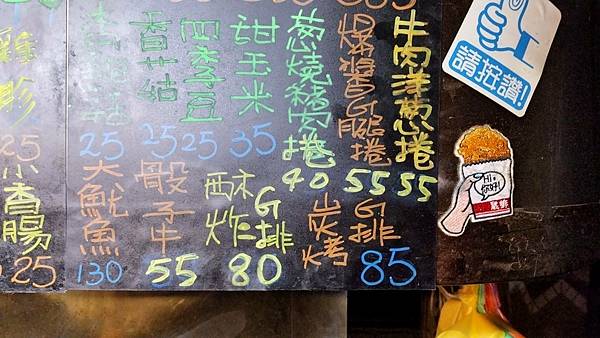 牛肉洋蔥捲
55
爆醬G腿捲
55
蔥燒豬肉捲
40
甜玉米
35
四季豆
25
香菇
25
25
小香腸
25
大魷魚
130
骰子牛
55
酥炸G排
80
炭烤G排
85
請按讚!
Hi,
你好!